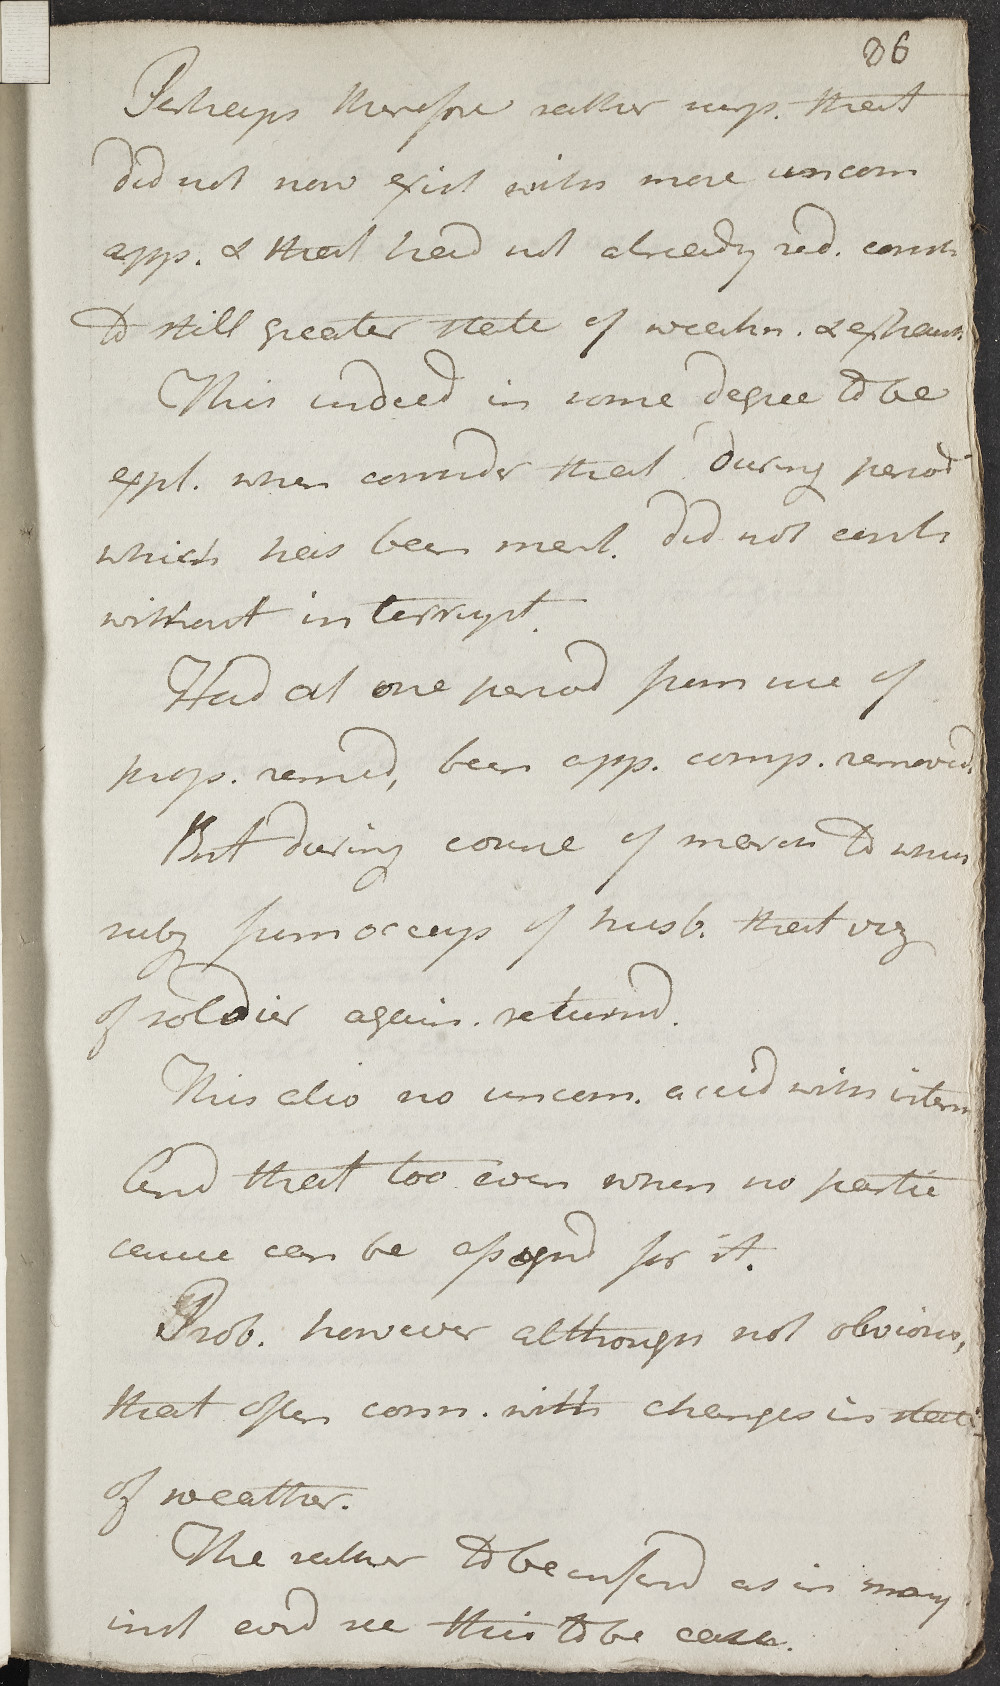 86
Perhaps therefore rather surp. that
did not now exist with more uncom
app. & that had not already red. const
to still greater state of weakn. & exhaust
This indeed in some degree to be
expl. when consider that during period
which has been ment. did not cont
without interrupt.
Had at one period from use of
prop. remed, been app. comp. removed.
But during course of march to which
subj from occup of husb. that viz
of soldier again. returnd.
This also no uncom. accid with interm
And that too even when no partic
cause can be assignd for it.
Prob. however although not obvious,
that often conn. with changes in state
of weather.
The rather to be inferd as in many
inst evid see this to be case.